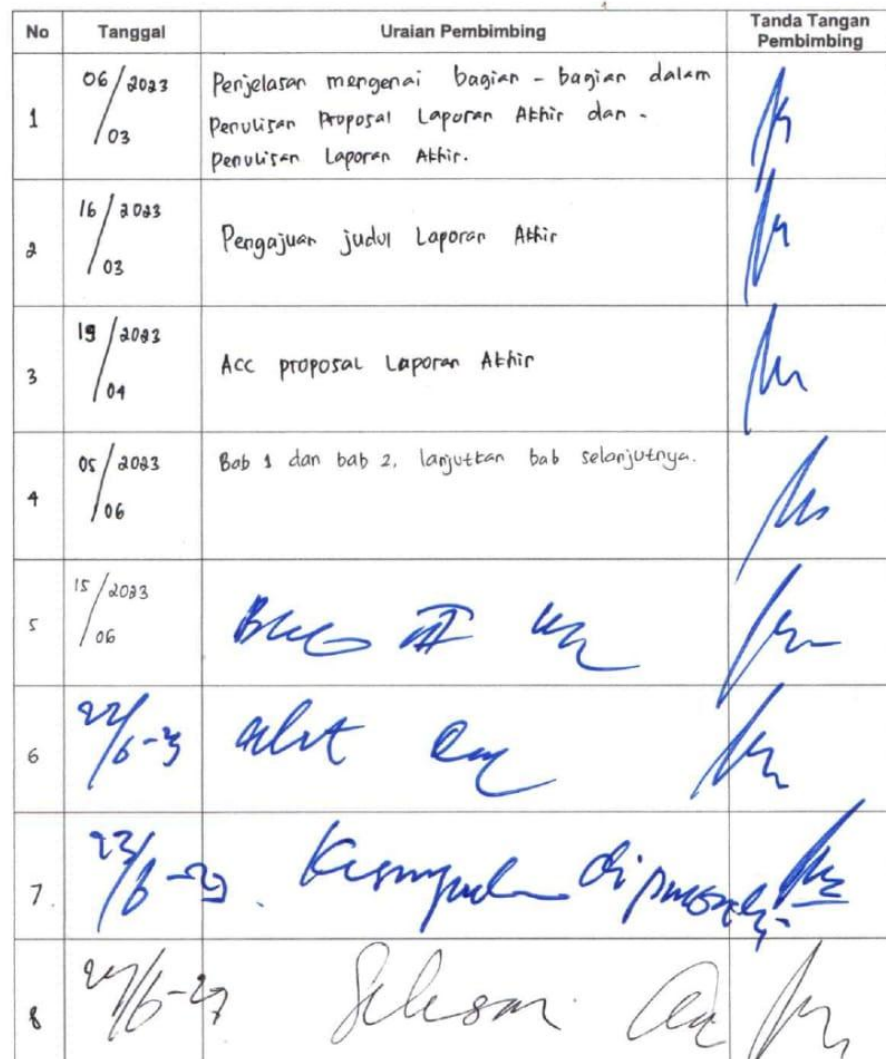 No Tanggal Uraian Pembimbing Tanda Tangan Pembimbing
1 06/03 2023 Penjelasan mengenai bagian - bagian dalam
Penulisan Proposal Laporan Akhir dan -
Penulisan Laporan Akhir.
2 16/03 2023 Pengajuan judul Laporan Akhir
3 19/04 2023 Acc proposal Laporan Akhir
4 05/06 2023 Bab 1 dan bab 2, lanjutkan bab selanjutnya.
5 15/06 2023
6 22/6-23
7. 23/6-23. Kesimpulan
8 Selesai